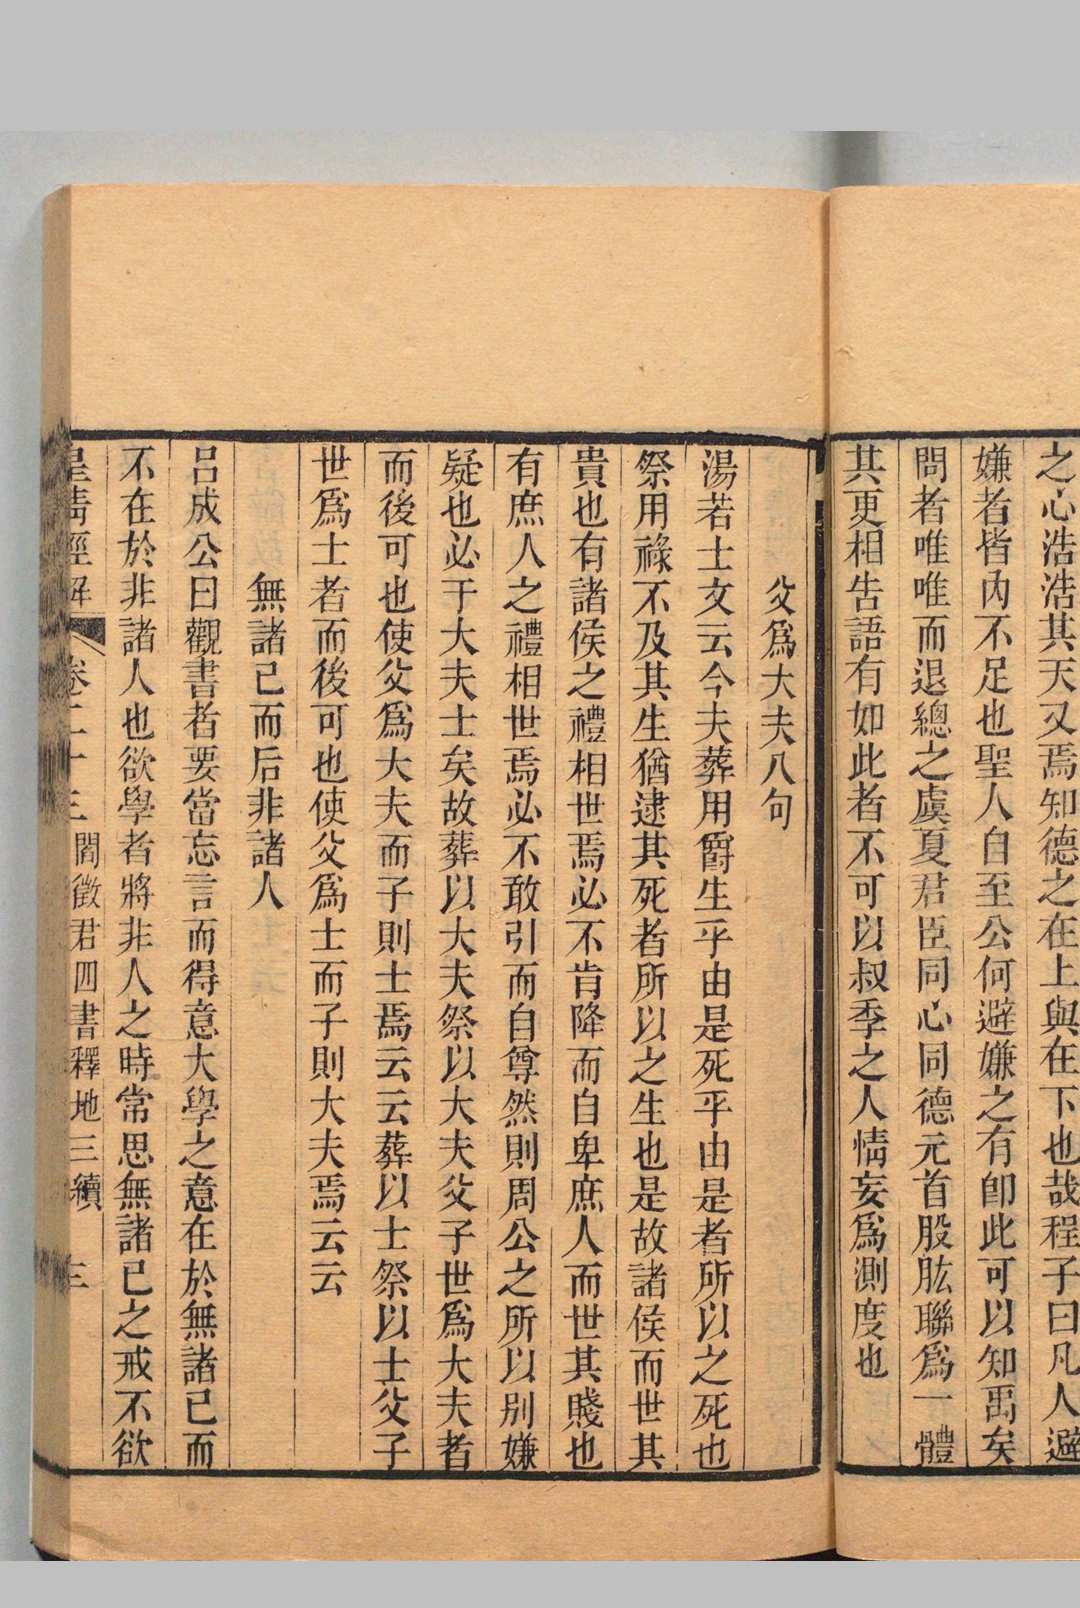 之心浩浩其天又焉知德之在上與在下也哉程子曰凡人避
嫌者皆內不足也聖人自至公何避嫌之有卽此可以知禹矣
問者唯唯而退總之虞夏君臣同心同德元首股肱聯爲一體
其更相告語有如此者不可以叔季之人情妄爲測度也
父爲大夫八句
湯若士文云今夫葬用爵生乎由是死乎由是者所以之死也
祭用祿不及其生猶逮其死者所以之生也是故諸侯而世其
貴也有諸侯之禮相世焉必不肯降而自卑庶人而世其賤也
有庶人之禮相世焉必不敢引而自尊然則周公之所以別嫌
疑也必于大夫士矣故葬以大夫祭以大夫父子世爲大夫者
而後可也使父爲大夫而子則士焉云云葬以士祭以士父子
世爲士者而後可也使父爲士而子則大夫焉云云
無諸已而后非諸人
呂成公曰觀書者要當忘言而得意大學之意在於無諸已而
不在於非諸人也欲學者將非人之時常思無諸已之戒不欲
皇清經解 卷二十三 閻徵君四書釋地三續 三